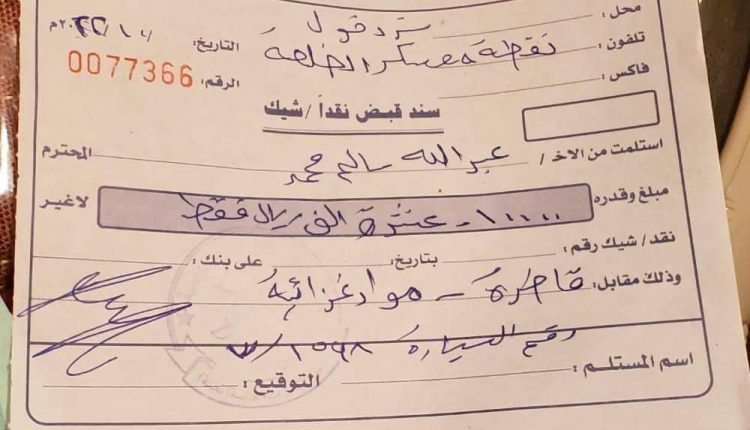 محل : سند دخول
تلفون : نقطة معسكر الضلعة
التاريخ: / / ٢٠٢م
فاكس :
الرقم: 0077366
سند قبض نقداً / شيك
استلمت من الاخ / عبدالله سالم محمد المحترم
مبلغ وقدره ١٠٠٠٠ - عشرة الف ريال فقط لاغير
نقد/ شيك رقم : بتاريخ: على بنك:
وذلك مقابل: قاطرة - مواد غذائية
رقم السيارة
اسم المستلم : التوقيع :